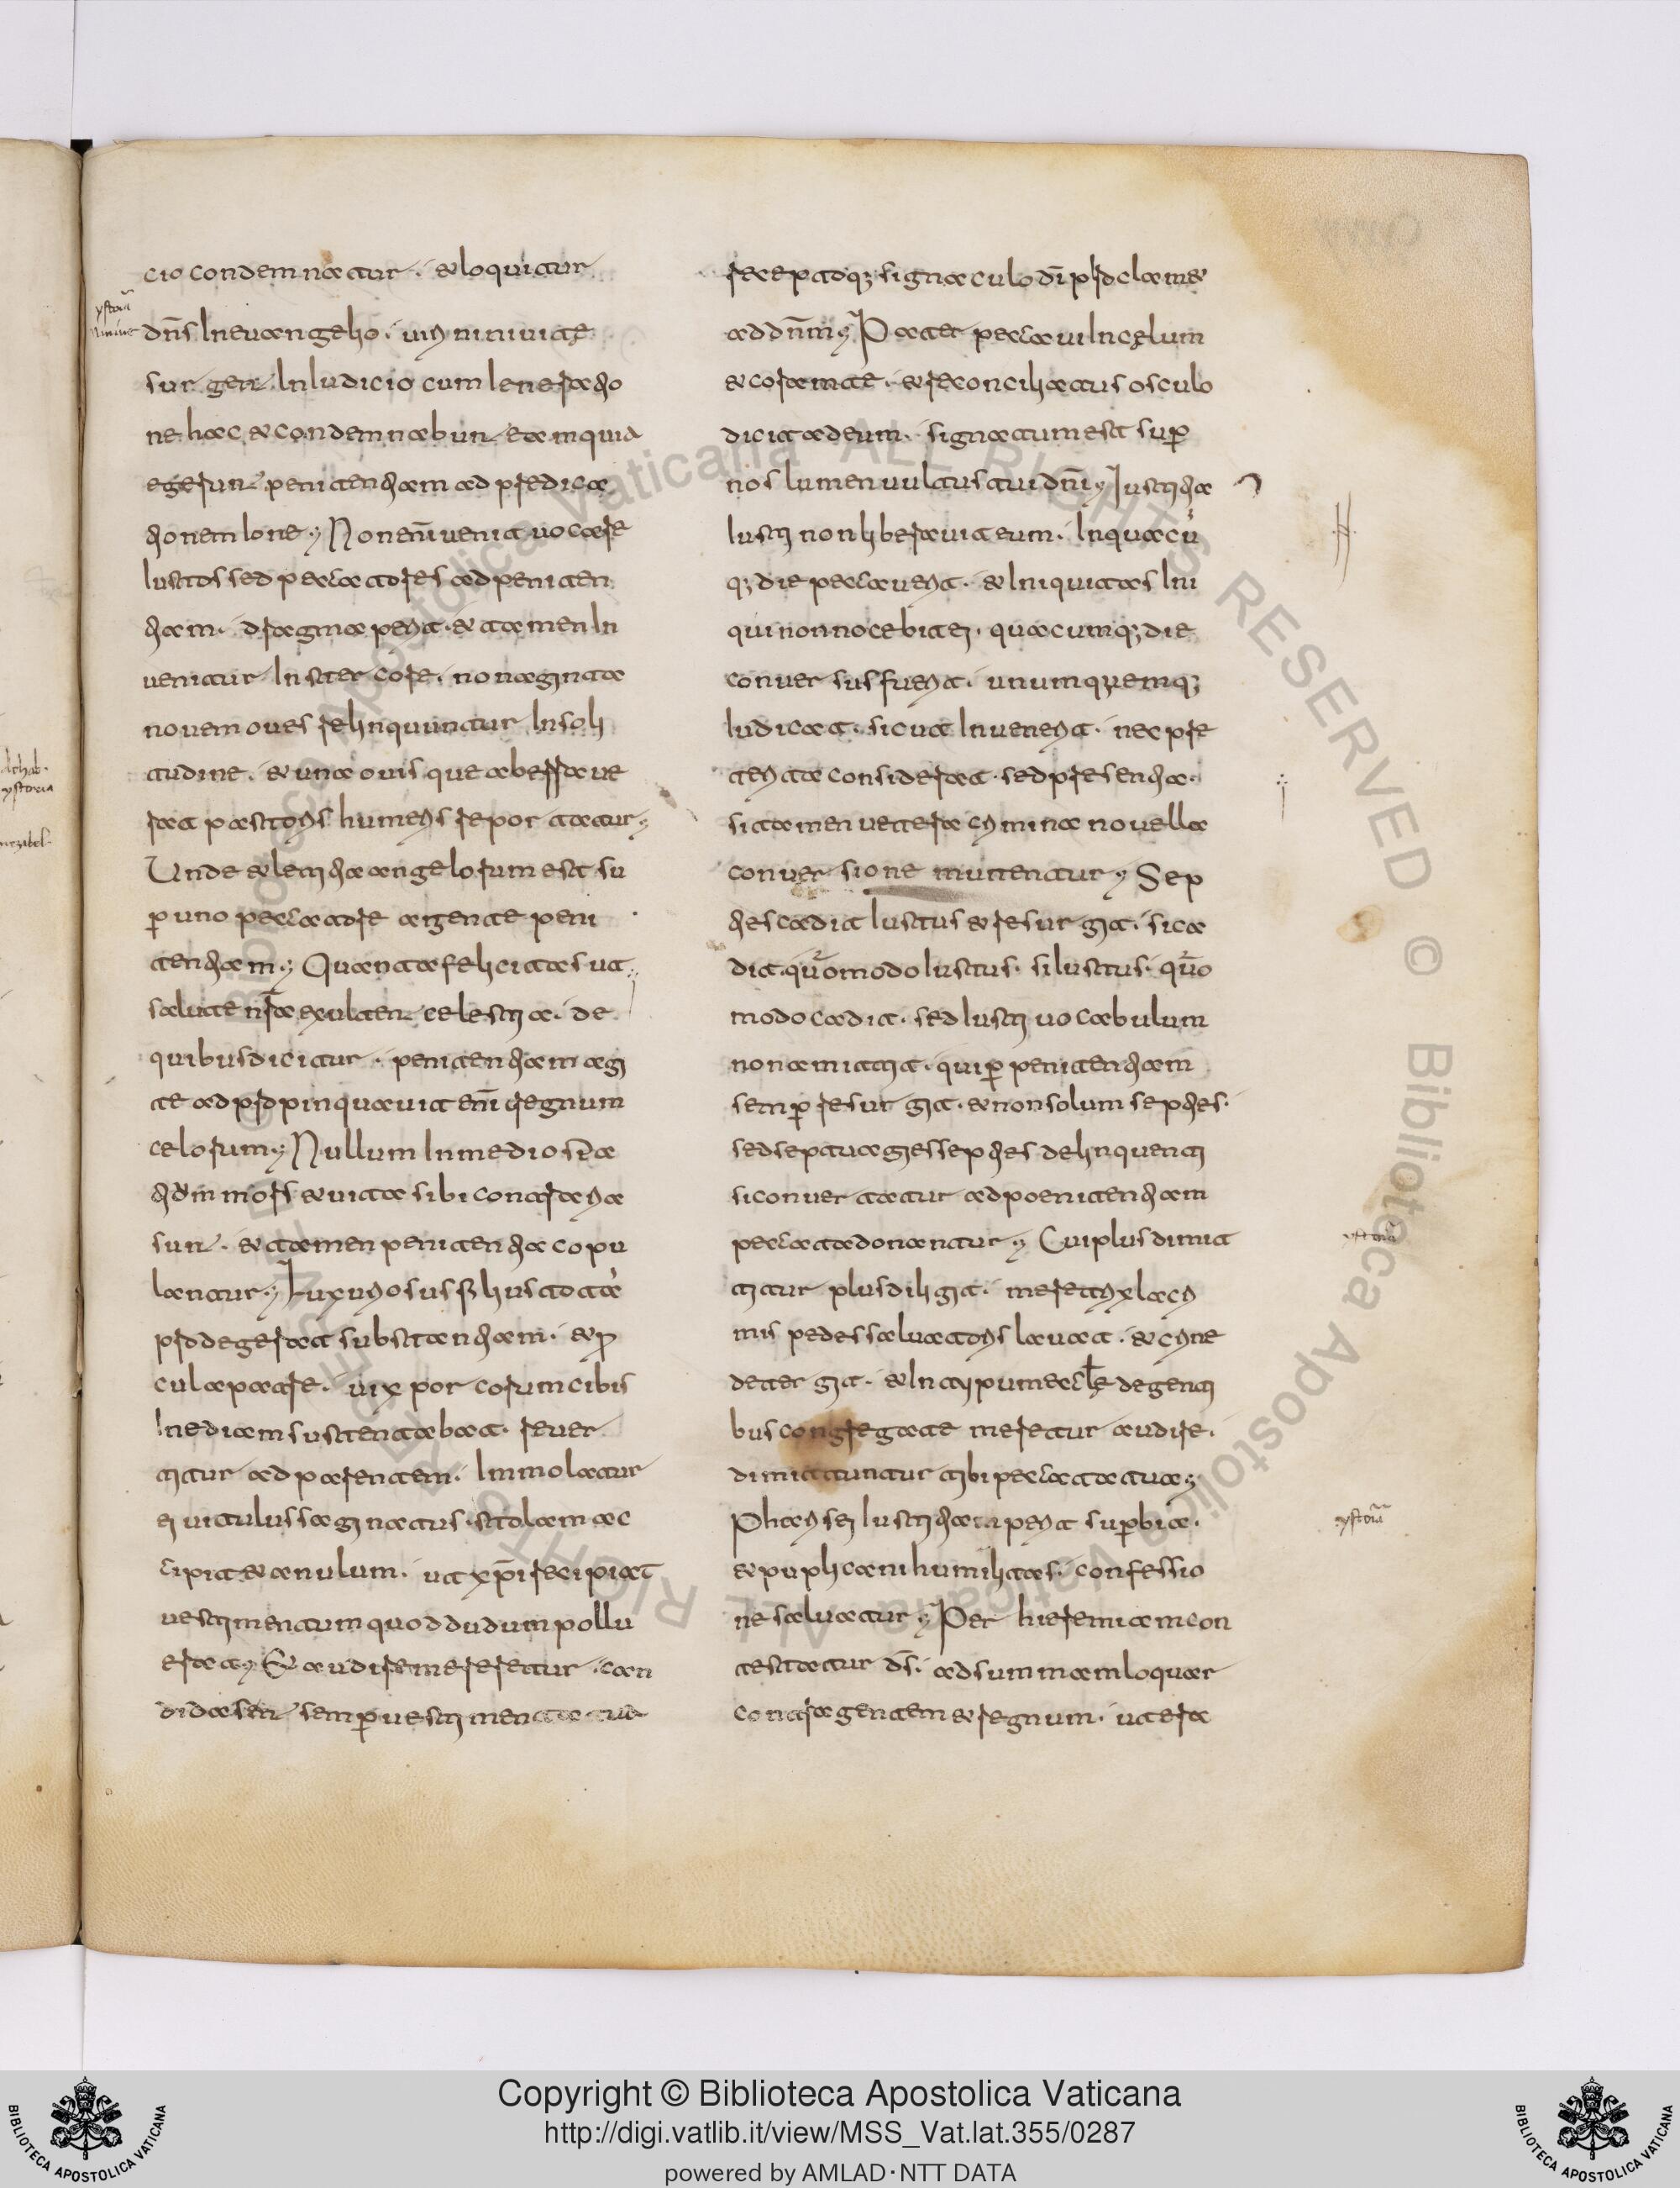 cio condemnatur. & loquitur
ystoria
niniue
dn̄s In euangelio. uiri niniuitę
surgent In Iudicio cum Ieneratio
ne hac & condemnabunt eam quia
egerunt penitentiam ad predica
tionem Ione; Non enī uenit uocare
Iustos sed peccatores ad peniten
tiam. dragma perit. & tamen In
uenitur In stercore. nonaginta
nouem oues relinquuntur In soli
tudine. & una ouis que aberraue
rat pastoris humeris reportatur;
Unde & letitia angelorum est su
per uno peccatore agente peni
tentiam; Quanta felicitas ut
salute nr̄a exultent celestia. de
quibus dicitur. penitentiam agi
te adpropinquauit enī regnum
celorum; Nullum In medio spa
tiūm mors & uita sibi contraria
sunt. & tamen penitentia copu
lantur; Luxuriosus filius totā
prodegerat substantiam. & pro
cul a patre. uix porcorum cibis
Inediam sustentabat. reuer
titur ad parentem. Immolatur
ei uitulus saginatus. stolam ac
cipit & anulum. ut xp̄i recipiat
uestimentum quod dudum pollu
erat; & audire meretur. can
didae sent semper uestimenta tua
receptoq; signaculo dī proclam&
ad dn̄m; Pater peccaui In cęlum
& coram te. & reconciliatus osculo
dicit ad eum. signatum est super
nos lumen uultus tui dn̄i; Iustitia
Iusti non liberauit eum. In quacū
q; die peccauerit. & Iniquitas Ini
qui non nocebit ei. quacumq; die
conuersus fuerit. unumquemq;
Iudicat. sicut Inuenerit. nec pre
terita considerat. sed presentia.
si tamen uetera crimina nouella
conuersione mutentur; Sep
ties cadit Iustus & resurgit. si ca
dit. quomodo Iustus. si Iustus. quo
modo cadit. sed Iusti uocabulum
non amittit. qui per penitentiam
semper resurgit. & non solum septies.
sed septuagies septies delinquenti
si conuertatur ad poenitentiam
peccata donantur; Cui plus dimit
ystoria
titur plus diligit. meretrix lacri
mis pedes saluatoris lauat. & crine
detergit. & In typum eccle degenti
bus congregate meretur audire.
dimittuntur tibi peccata tua;
Pharisei Iustitia perit superbia.
ystoria
& puplicani humilitas. confessio
ne saluatur; Per hieremiam con
testatur ds̄. ad summam loquar
contra gentem & regnum. ut era
Copyright © Biblioteca Apostolica Vaticana
http://digi.vatlib.it/view/MSS_Vat.lat.355/0287
powered by AMLAD·NTT DATA
BIBLIOTECA APOSTOLICA VATICANA
BIBLIOTECA APOSTOLICA VATICANA